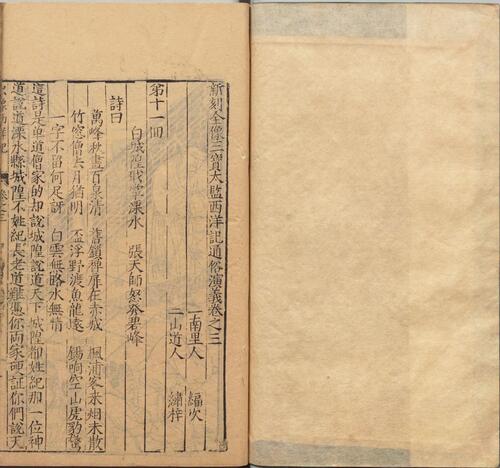 新刻全像三寶太監西洋記通俗演義卷之三
二南里人 編次
三山道人 繡梓
第十一回
白城隍執掌溧水 張天師怒發碧峰
詩曰
萬峰秋盡百泉清 舊鎖禪扉在赤城 楓浦客來烟未散
竹窓僧去月猶明 盃浮野渡魚龍遠 錫响空山虎豹驚
一字不留何足訝 白雲無路水無情
這詩是單道僧家的却說城隍說道天下城隍都姓紀那一位神
道說道溧水縣城隍不姓紀長老道難憑你兩家硬証你們說天
西洋記 卷之三